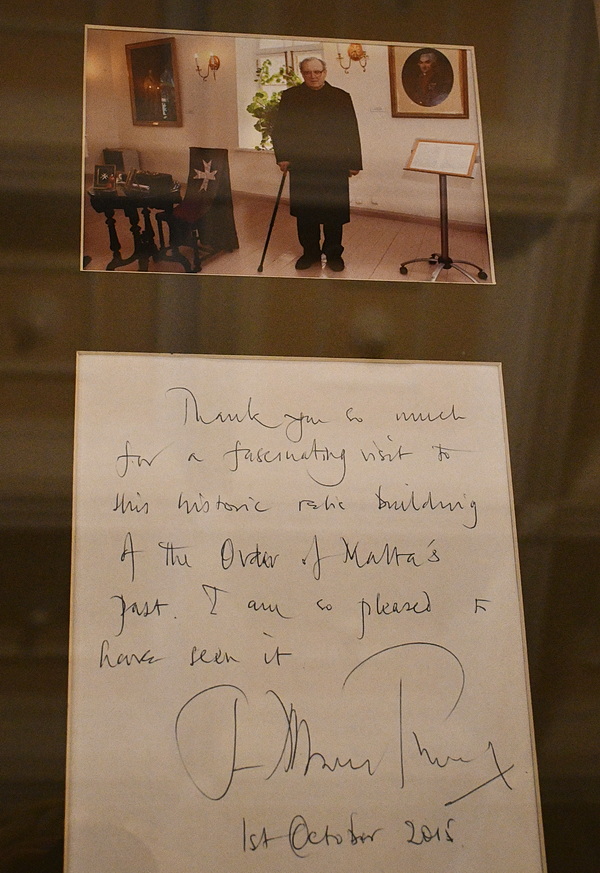 Thank you so much
for a fascinating visit to
this historic relic building
of the Order of Malta's
past. I am so pleased to
have seen it
1st October 2015.